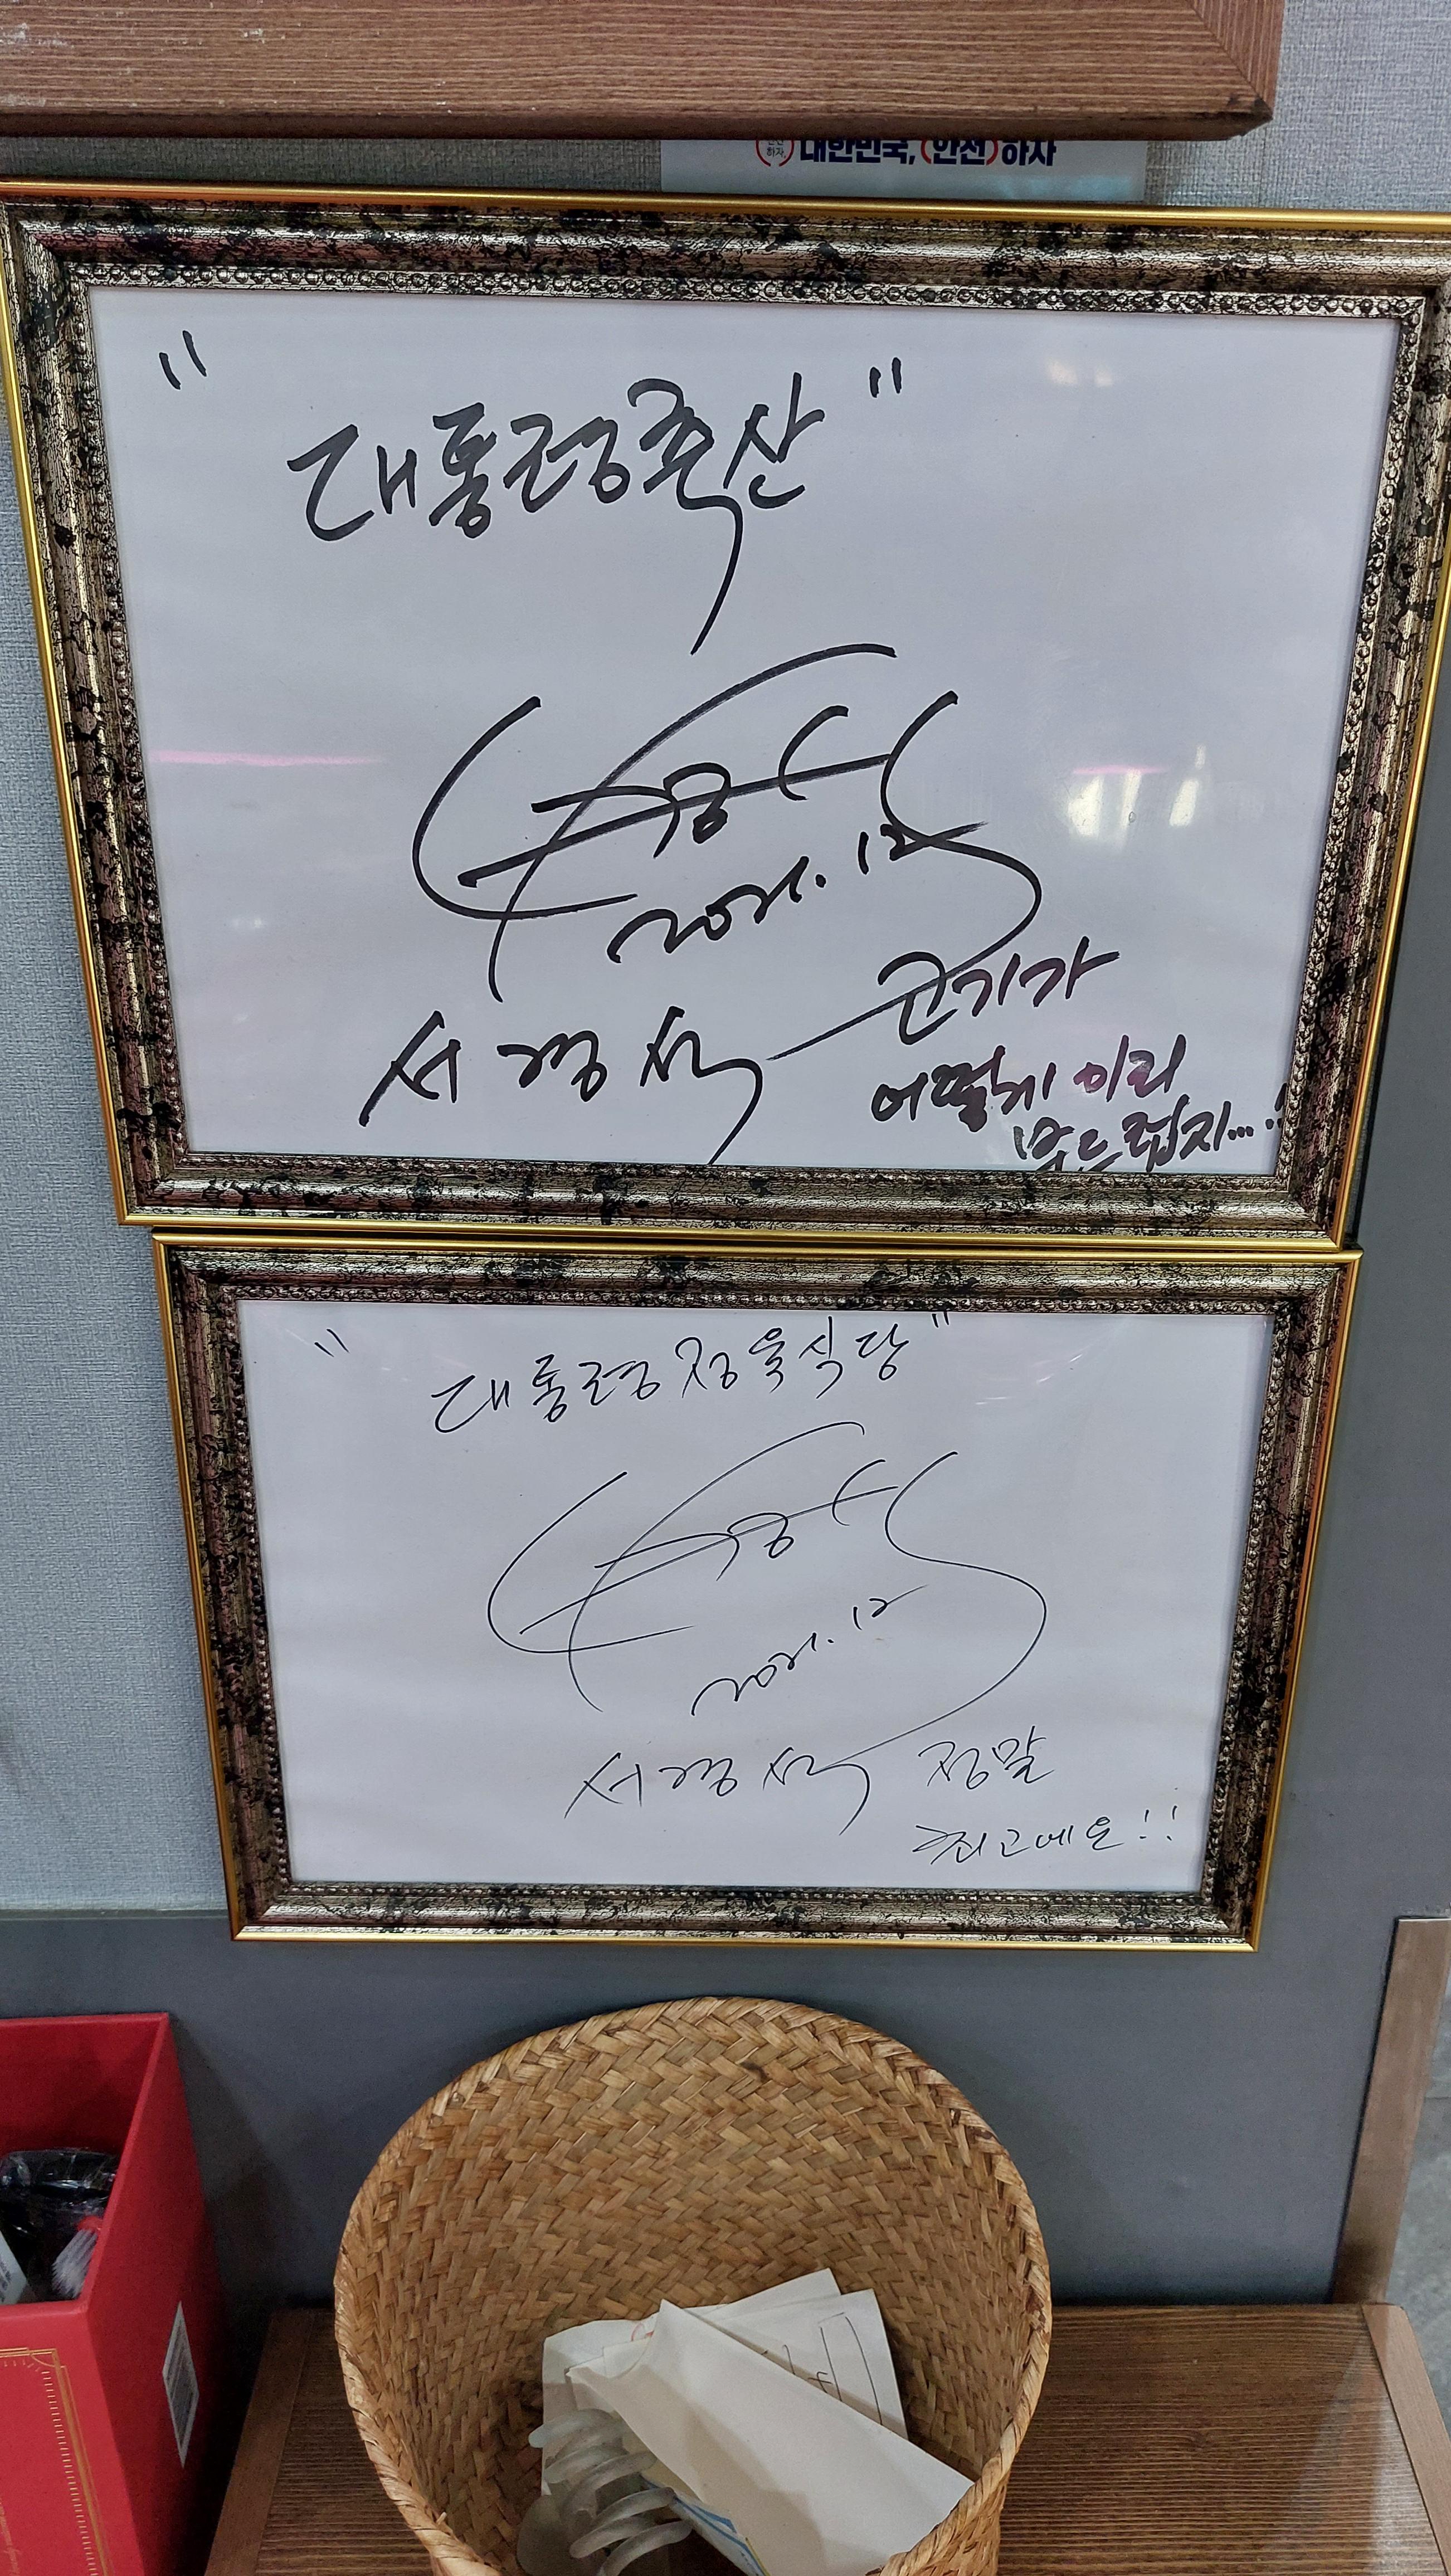 대한민국, (안전)하자
"대통령축산"
2021. 12
서경석
고기가
어떻게 이리
부드럽지...!
"대통령정육식당"
2021. 12
서경석 정말
최고예요!!